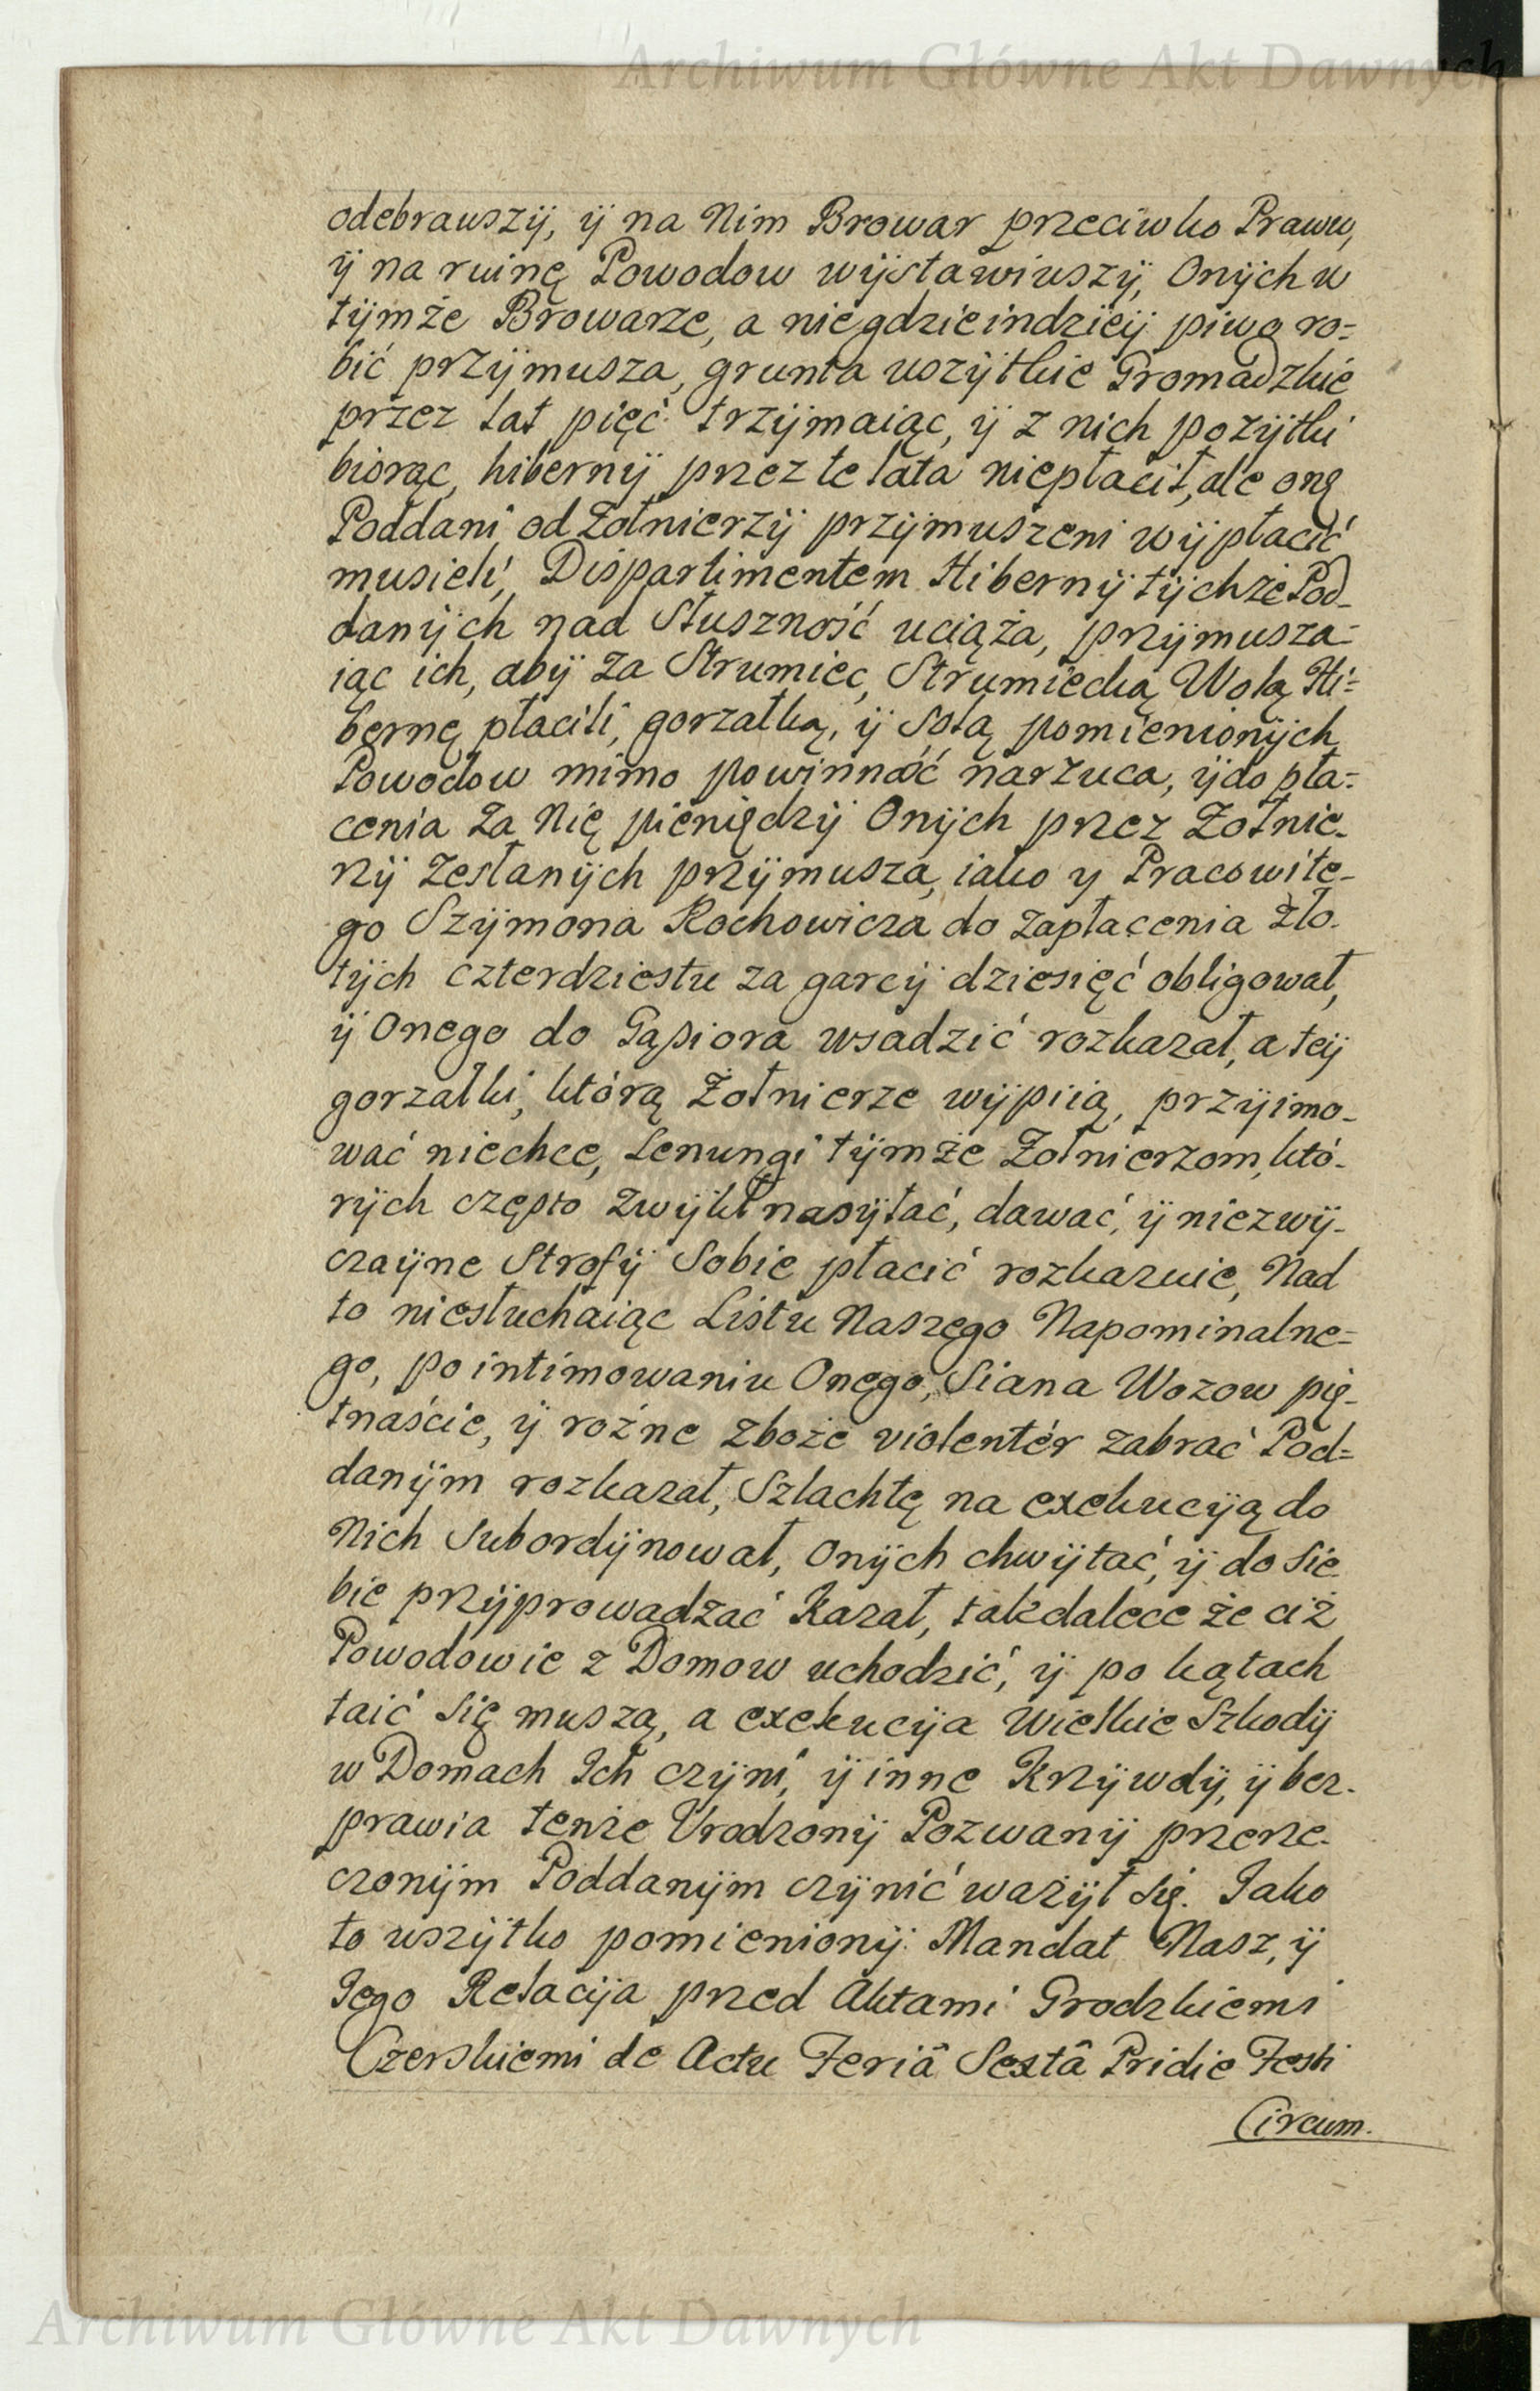 Archiwum Główne Akt Dawnych
odebrawszÿ, ÿ na Nim Browar przeciwko Prawu,
ÿ na ruinę Powodow wÿstawiwszÿ, Onÿch w
tÿmże Browarze, a niegdzieindzieÿ piwo ro=
bić przÿmusza, grunta wszÿtkie Gromadzkie
przez lat pięć trzÿmaiąc, ÿ z nich pozÿtki
biorąc, hibernÿ przez te lata niepłacił, ale onę
Poddani od Żołnierzÿ przÿmuszeni wÿpłacić
musieli, Dispartimentem Hibernÿ tÿchże Pod-
danÿch nad Słuszność uciąża, przÿmusza-
iąc ich, abÿ za Strumiec, Strumiecką Wolą Hi=
bernę płacili, gorzałką, ÿ Solą pomienionÿch
Powodow mimo powinność narzuca, ÿ do pła=
cenia za Nię pieniędzÿ Onÿch przez Żołnie-
rzÿ Zesłanÿch przÿmusza, iako y Pracowite-
go Szÿmona Rochowicza do zapłacenia Zło-
tÿch czterdziestu za garcÿ dziesięć obligował,
ÿ Onego do Gąsiora wsadzić rozkazał, a teÿ
gorzałki, którą Żołnierze wÿpiią, przÿimo-
wać niechce, Lenungi tÿmże Żołnierzom, któ-
rÿch często zwÿkł nasÿłać, dawać, ÿ niezwÿ-
czaÿne Strofÿ Sobie płacić rozkazuie, Nad
to niesłuchaiąc Listu Naszego Napominalne=
go, po intimowaniu Onego, Siana Wozow pię-
tnaście, ÿ rożne zboże violentèr zabrać Pod=
danÿm rozkazał, Szlachtę na exekucÿą do
Nich Subordÿnował, Onÿch chwÿtać, ÿ do Sie-
bie przÿprowadzać Kazał, takdalece że ciż
Powodowie z Domow uchodzić, ÿ po kątach
taić Się muszą, a exekucÿa Wielkie Szkodÿ
w Domach Ich czÿni, ÿ inne Krzÿwdÿ, ÿ bez-
prawia tenże Urodzonÿ Pozwanÿ przerze-
czonÿm Poddanÿm czÿnić ważÿł Się. Jako
to wszÿtko pomienionÿ Mandat Nasz, ÿ
Jego Relacÿa przed Aktami Grodzkiemi
Czerskiemi de Actu Feriâ Sextâ Pridie Festi
Circum.
Archiwum Główne Akt Dawnych